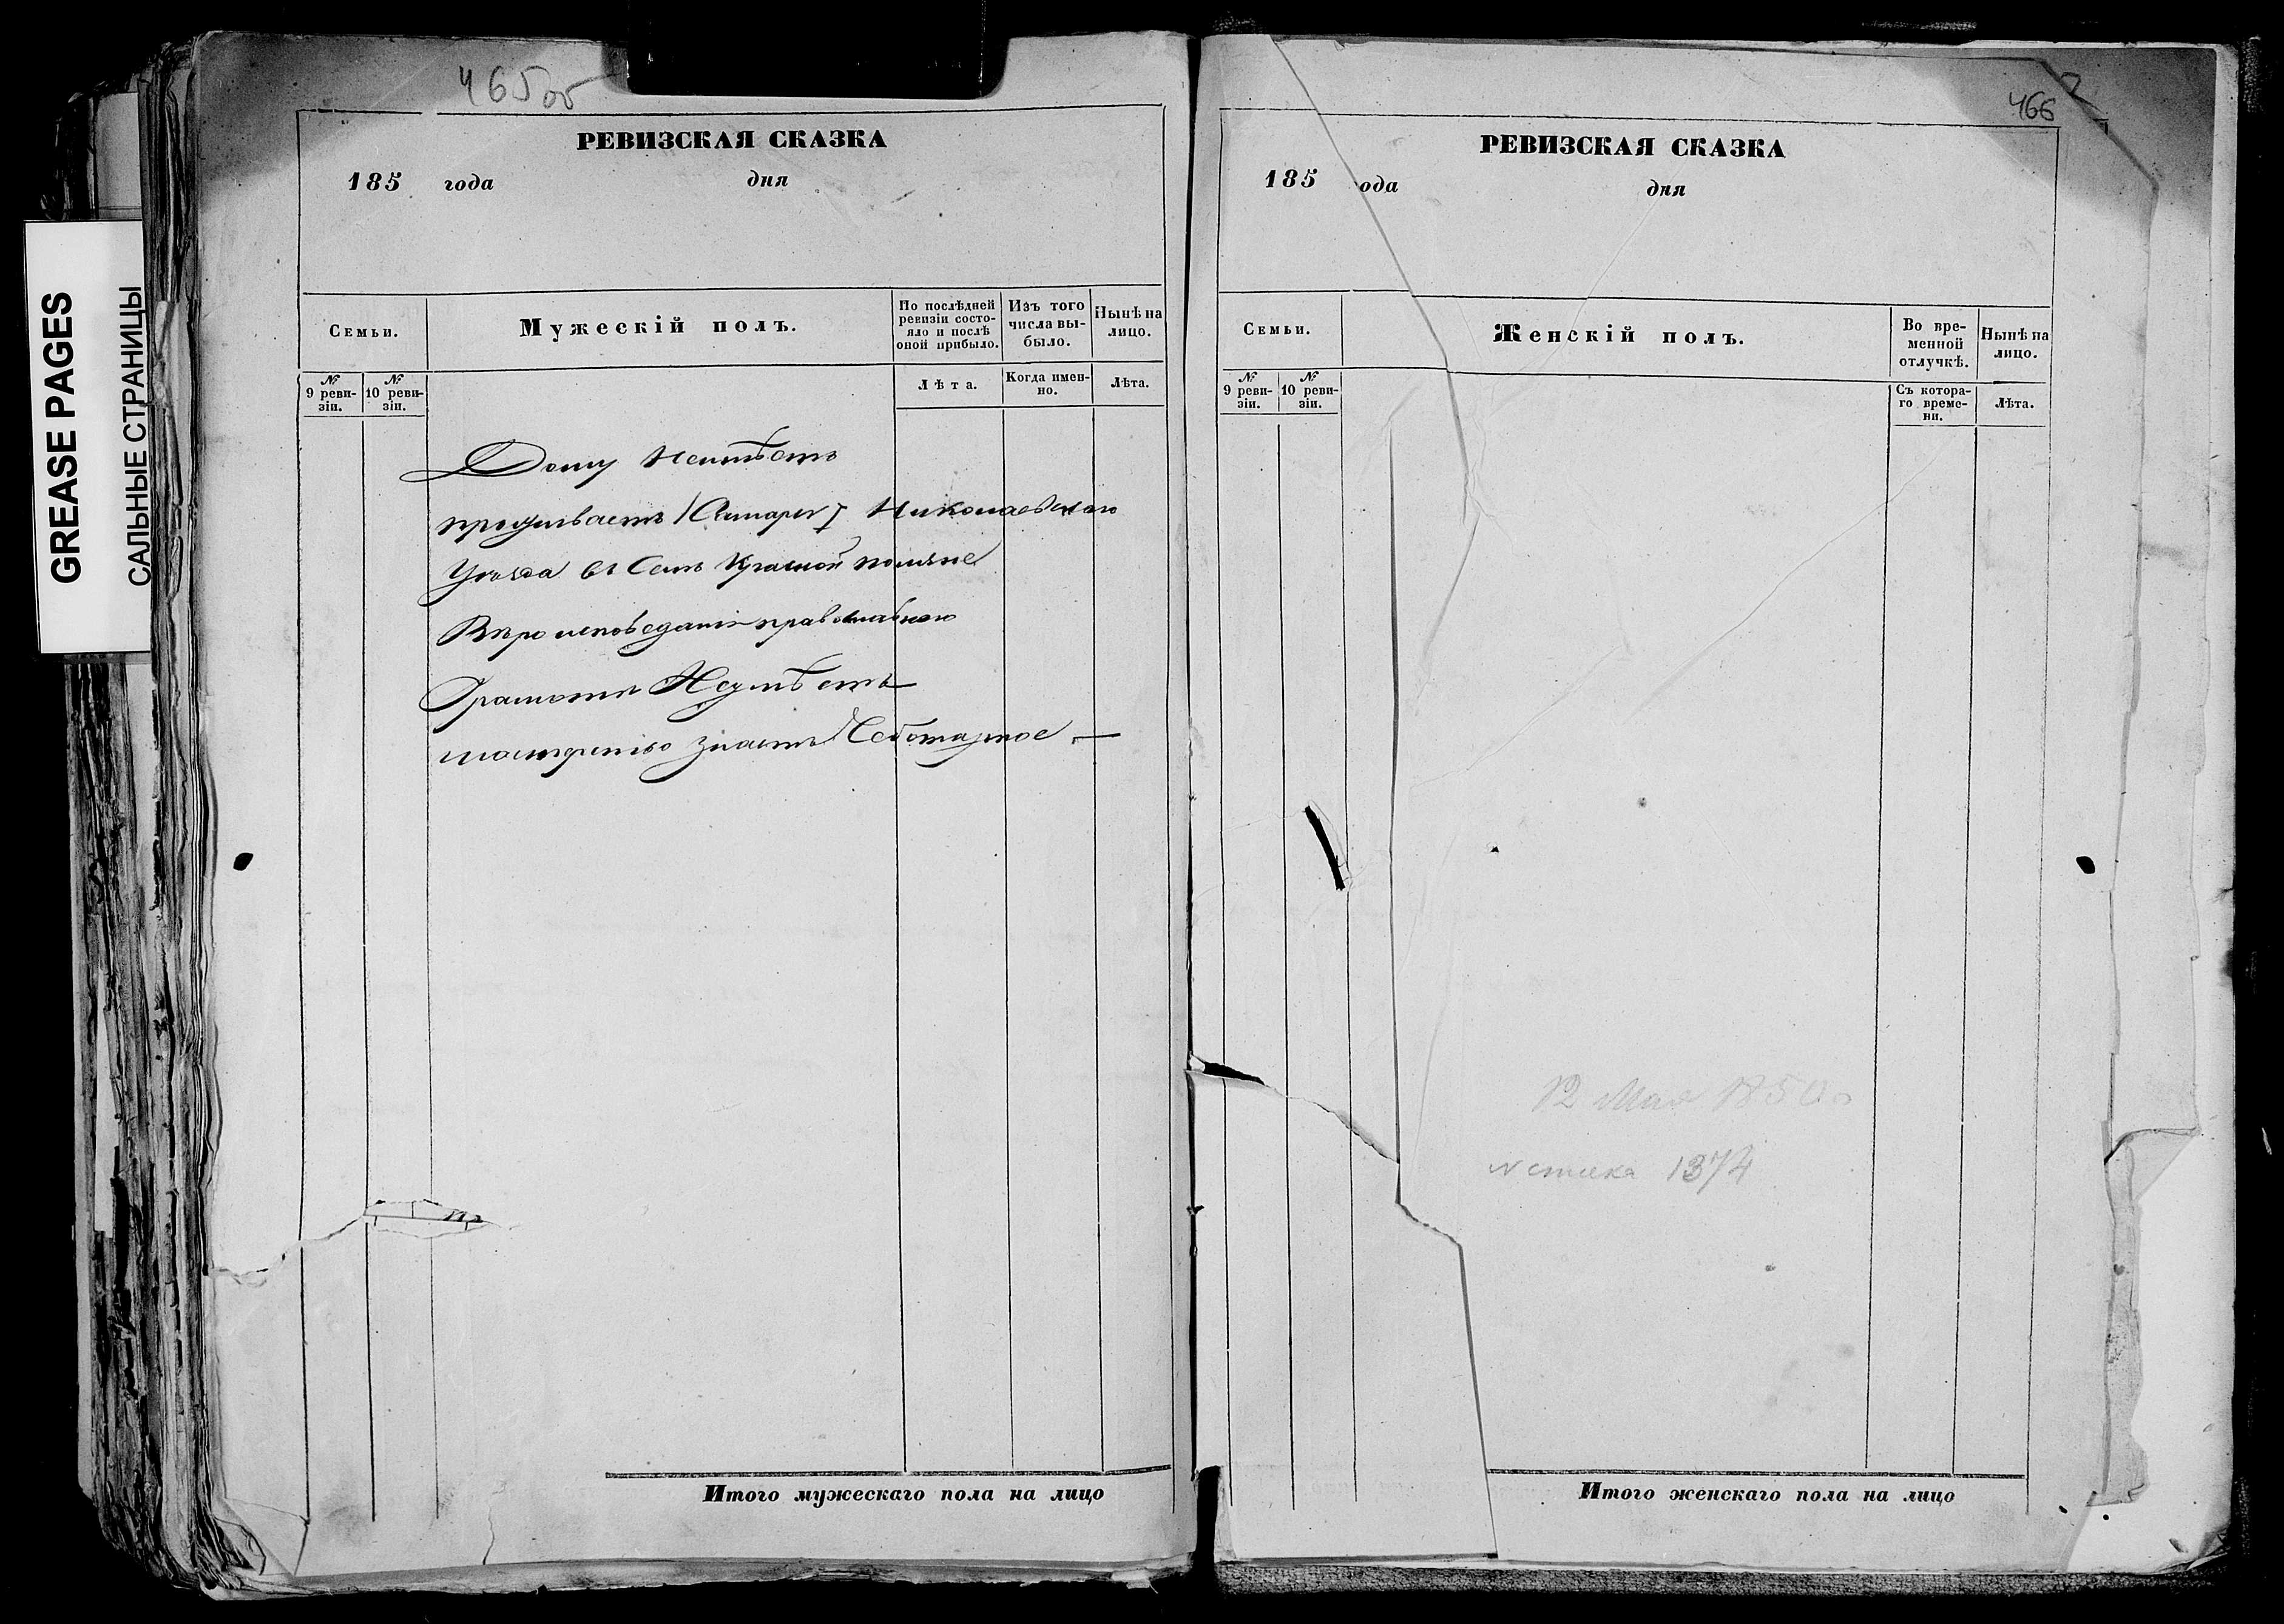 465об
РЕВИЗСКАЯ СКАЗКА
185 года дня
Семьи.
Мужескій полъ.
По послѣдней ревизіи состо-
яло и послѣ оной прибыло.
Изъ того числа вы-
было.
Нынѣ на лицо.
№ 9 реви-
зіи.
№ 10 реви-
зіи.
Лѣта.
Когда имен-
но.
Лѣта.
Дому Неимѣетъ
проживаетъ Николаевскаго
Уѣзда въ Селѣ Красной поляне
Вѣро исповеданія православнаго
Грамотѣ Неумѣетъ
мастерство знаетъ Чеботарное —
Итого мужескаго пола на лицо
466
РЕВИЗСКАЯ СКАЗКА
185 ода дня
Семьи.
Женскій полъ.
Во вре-
менной отлучкѣ.
Нынѣ на лицо.
№ 9 реви-
зіи.
№ 10 реви-
зіи.
Съ котора-
го време-
ни.
Лѣта.
12 Мая
1374
Итого женскаго пола на лицо
GREASE PAGES
САЛЬНЫЕ СТРАНИЦЫ